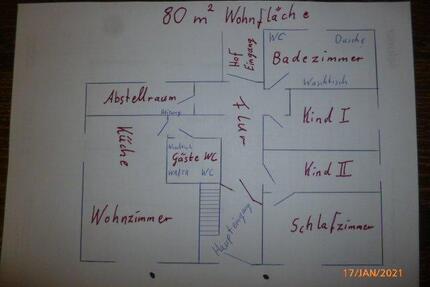 80 m² Wohnfläche
WC
Dusche
Hof
Eingang
Badezimmer
Waschtisch
Abstellraum
Flur
Kind I
Heizung
Küche
Gäste WC
WC
Kind II
Wohnzimmer
Haupteingang
Schlafzimmer
17/JAN/2021